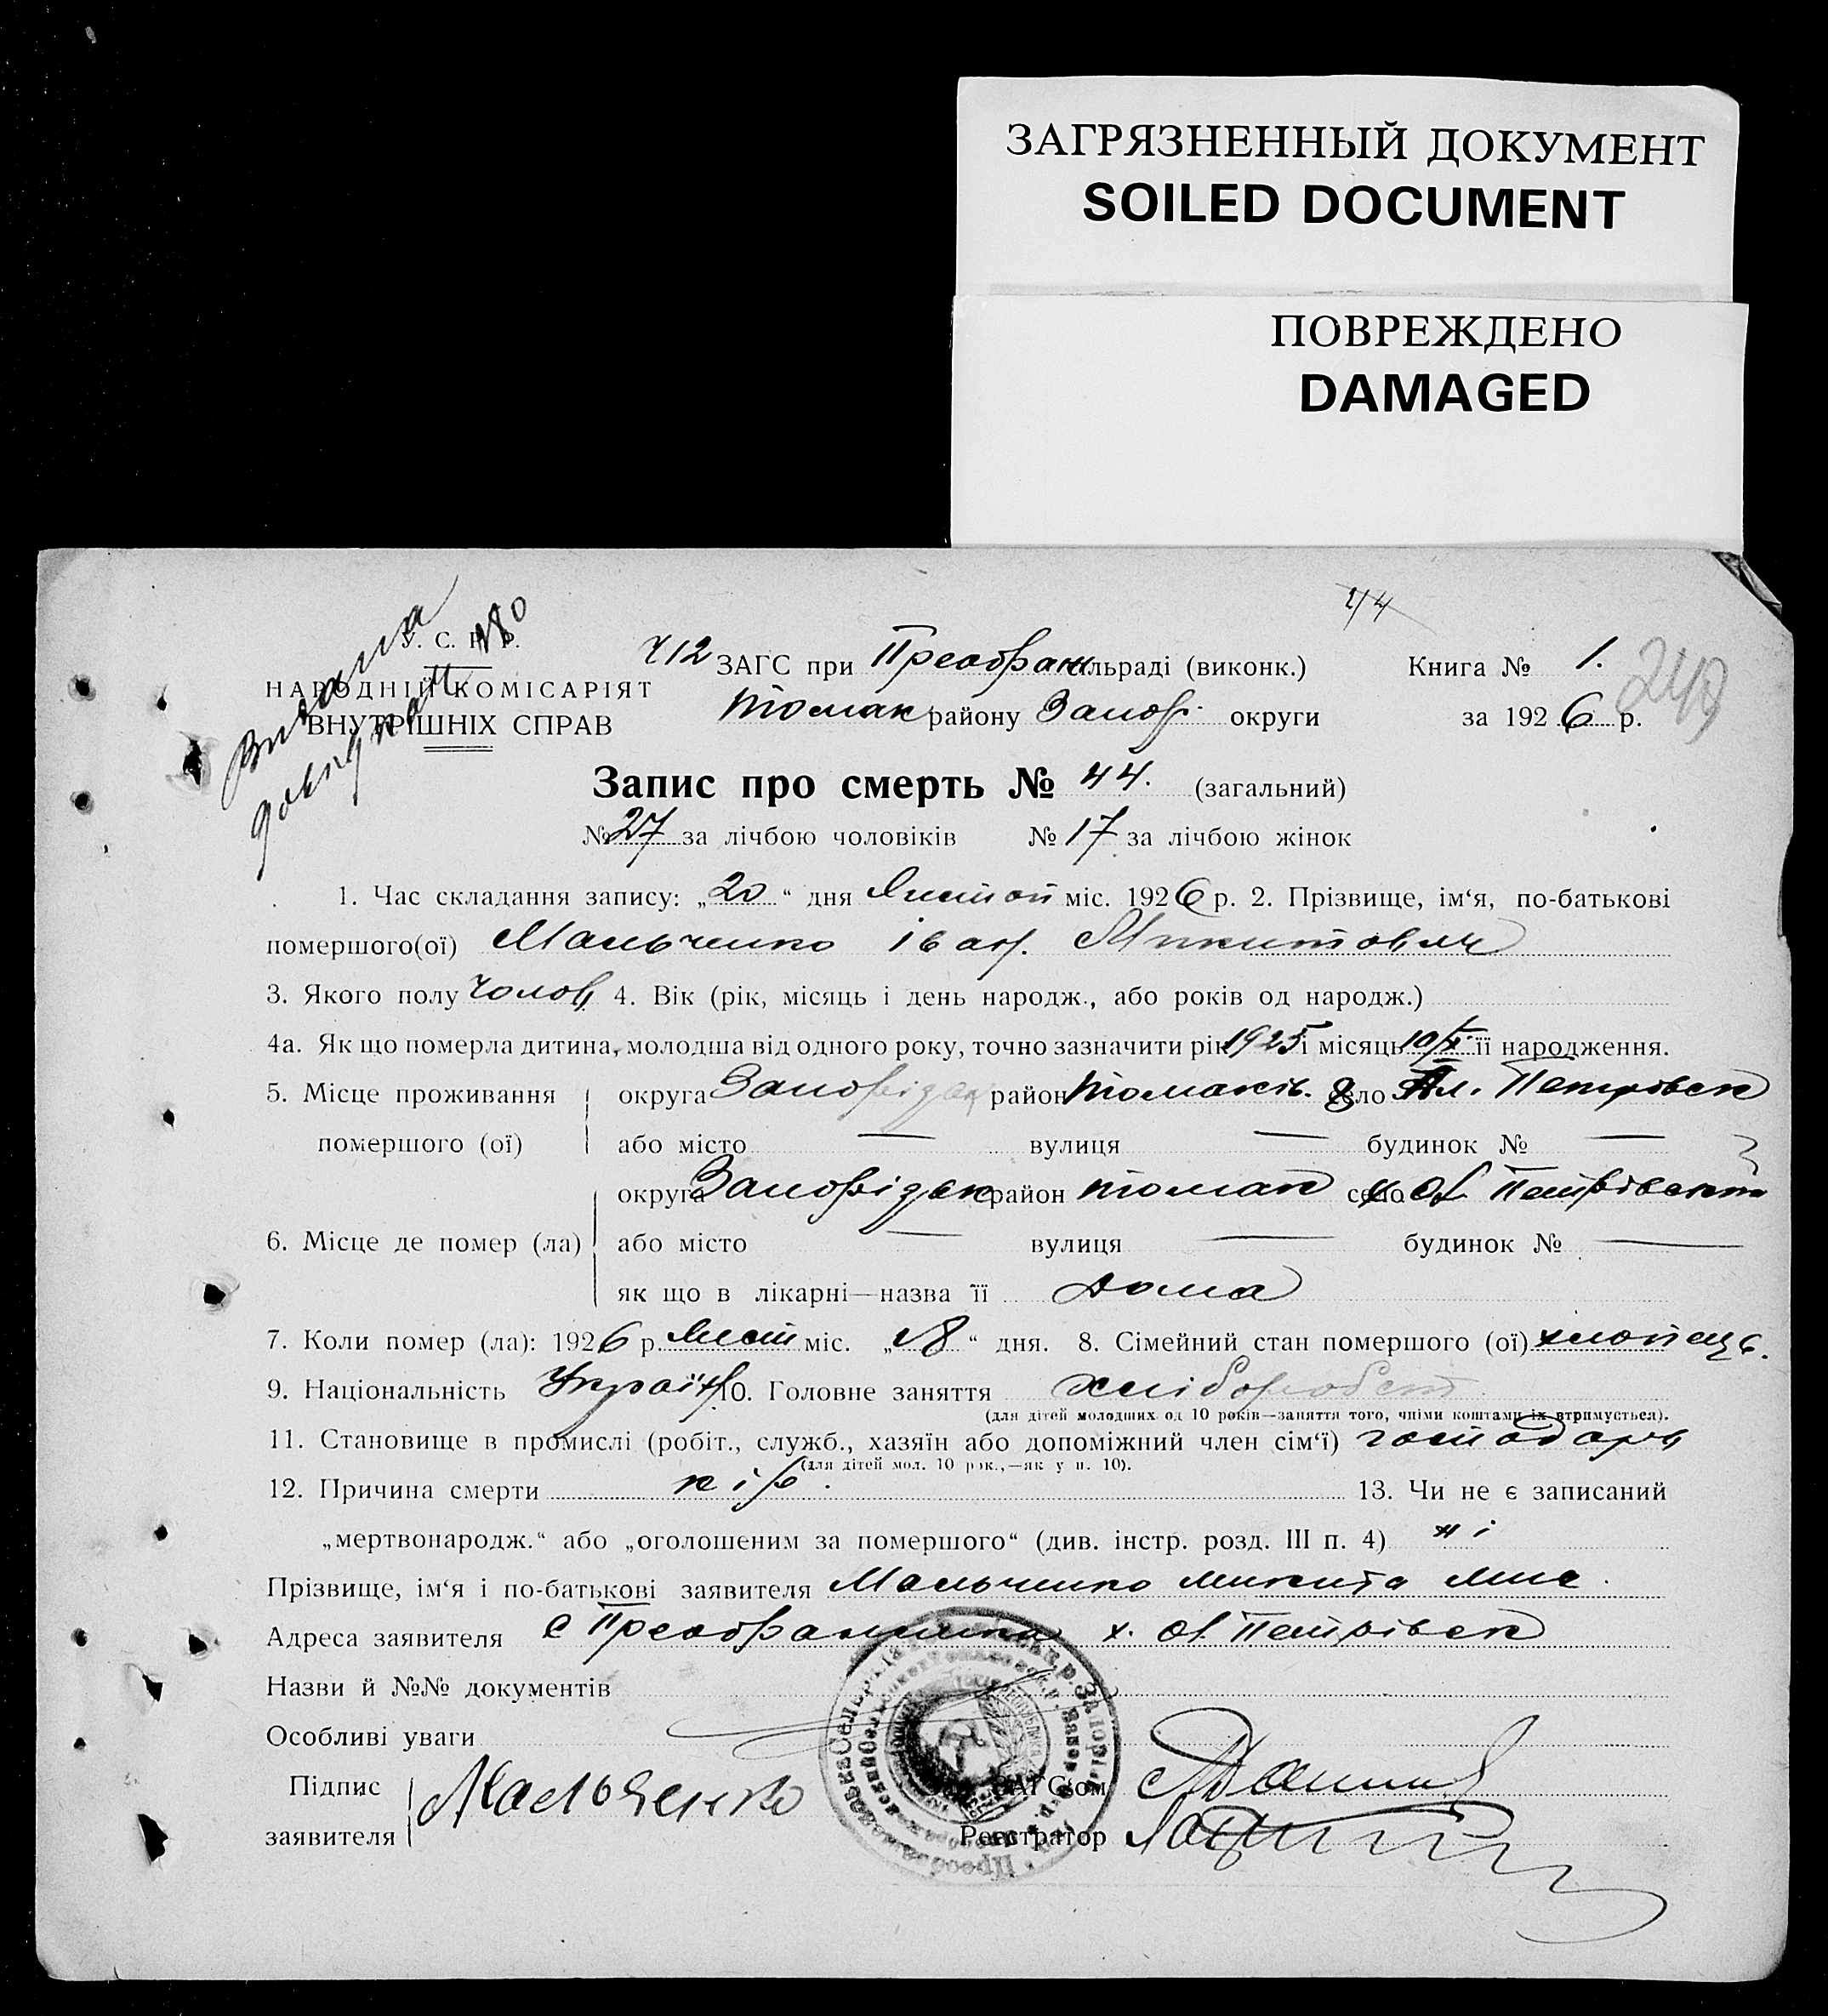 ЗАГРЯЗНЕННЫЙ ДОКУМЕНТ
SOILED DOCUMENT
ПОВРЕЖДЕНО
DAMAGED
У. С. Р. Р.
НАРОДНІЙ КОМІСАРІЯТ
ВНУТРІШНІХ СПРАВ
Видана
412 ЗАГС при Преображ льраді (виконк.) Книга № 1.
Томак району Запор. округи за 1926 р.
249
Запис про смерть № 44. (загальний)
№ 27 за лічбою чоловіків № 17 за лічбою жінок
1. Час складання запису: „20“ дня Листоп міс. 1926 р. 2. Прізвище, ім‘я, по-батькові
помершого(ої) Мальченко Іван Микитович
3. Якого полу чолов 4. Вік (рік, місяць і день народж., або років од народж.)
4а. Як що померла дитина, молодша від одного року, точно зазначити рік 1925 і місяць 10/X її народження.
5. Місце проживання помершого (ої) округа Запорізьк район Томаків. село Ол. Петровськ
або місто — вулиця — будинок № —
6. Місце де помер (ла) округа Запорізьк район Томак село х Ол Петрівськ
або місто — вулиця — будинок № —
як що в лікарні—назва її дома
7. Коли помер (ла): 1926 р. Лист міс. „18“ дня. 8. Сімейний стан помершого (ої) хлопець.
9. Національність Україн 10. Головне заняття хлібороб
(для дітей молодших од 10 років—заняття того, чиїми коштами їх втримується).
11. Становище в промислі (робіт., служб., хазяїн або допоміжний член сім‘ї) господарь
(для дітей мол. 10 рок.,—як у п. 10).
12. Причина смерти кір. 13. Чи не є записаний
„мертвонародж.“ або „оголошеним за помершого“ (див. інстр. розд. III п. 4) ні
Прізвище, ім‘я і по-батькові заявителя Мальченко Микита Мис.
Адреса заявителя с Преображенка х. Ол. Петрівськ
Назви й №№ документів
Особливі уваги
Підпис заявителя Мальченко
ЗАГС‘ом
Реєстратор